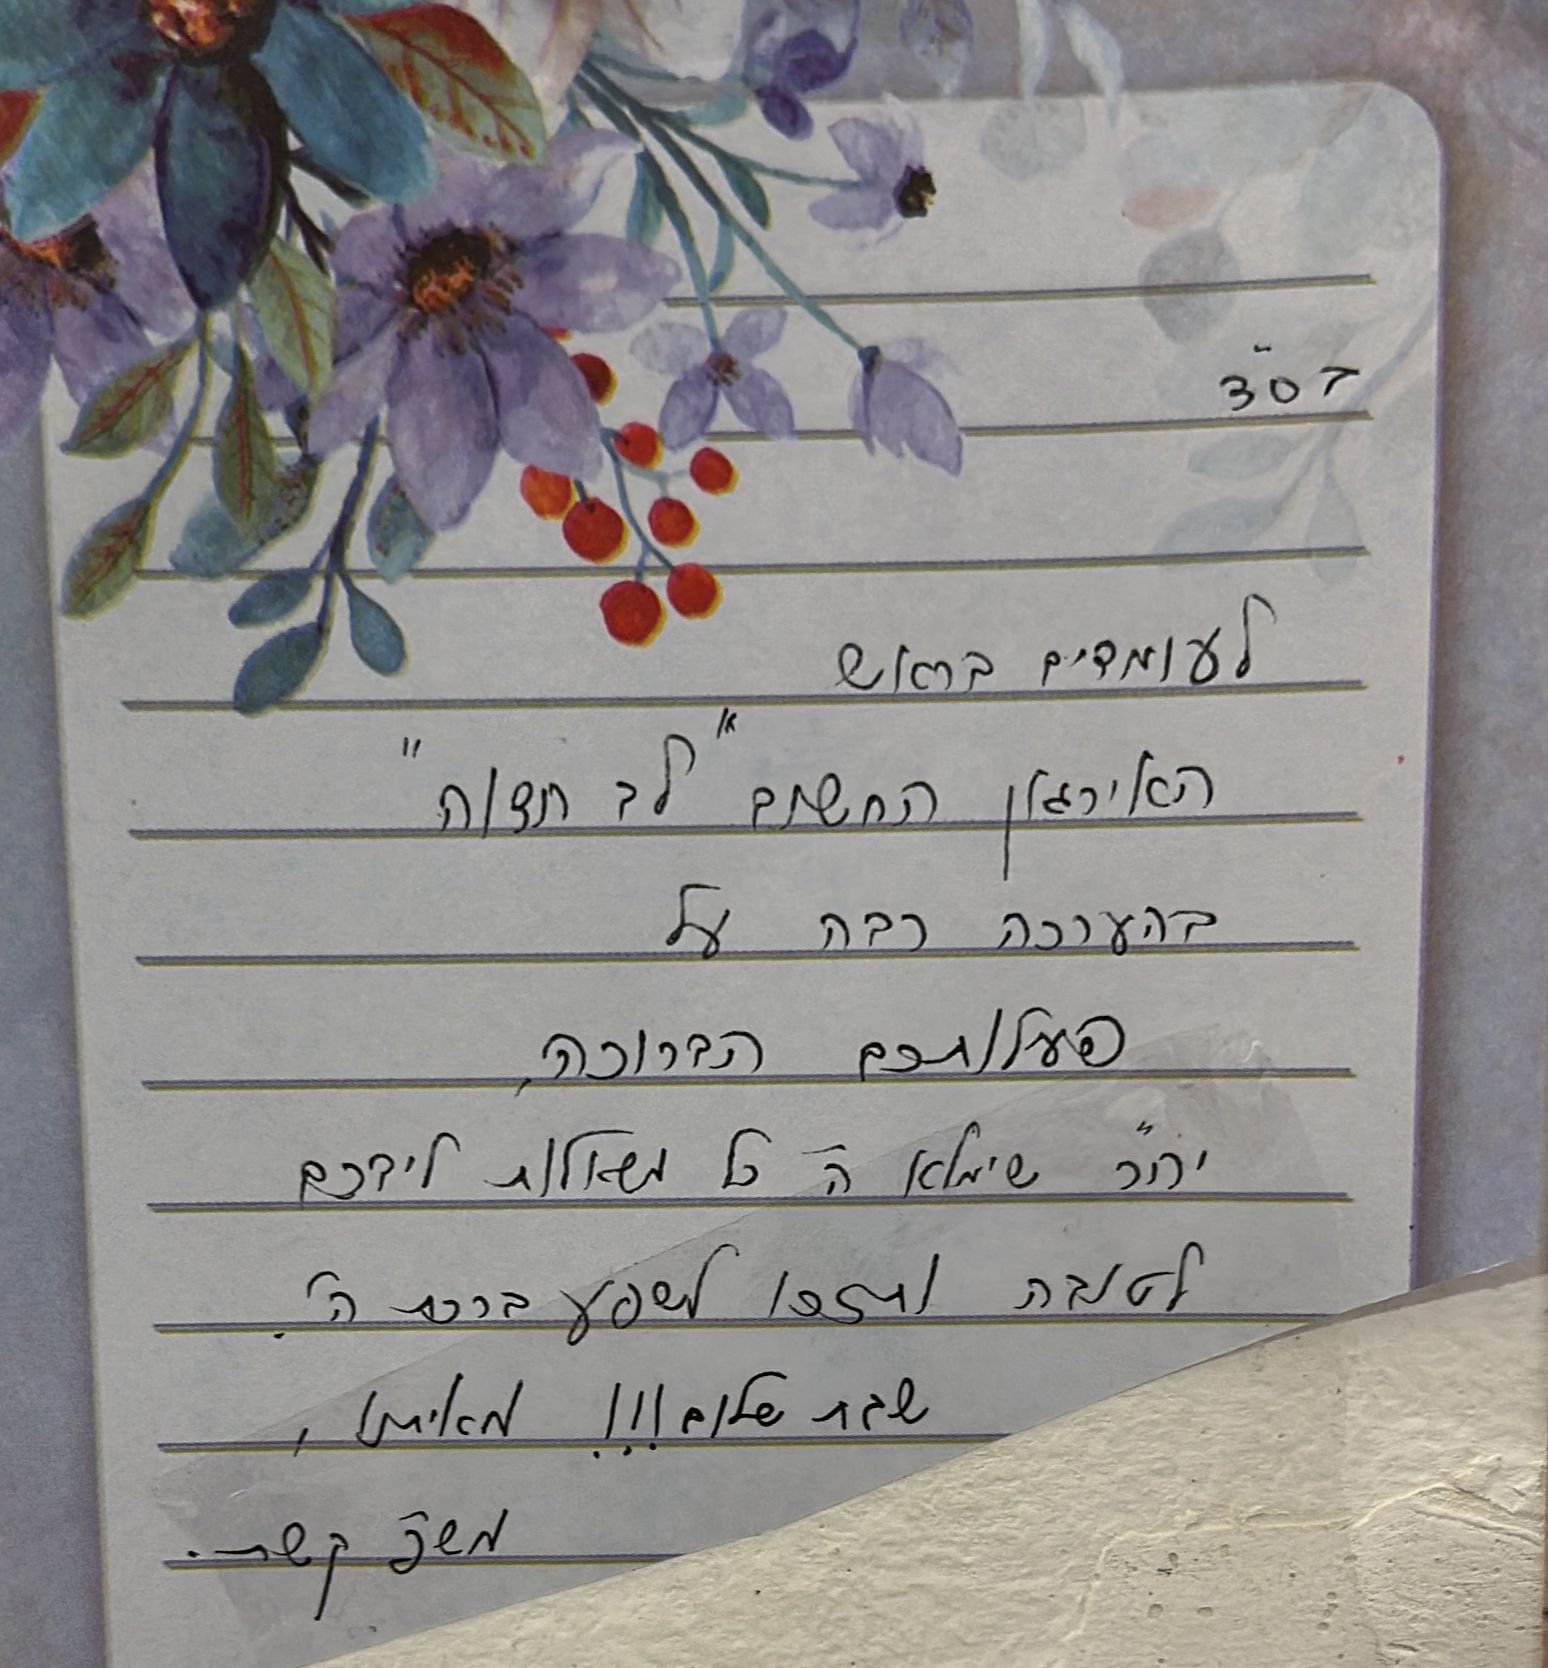 בס"ד
לעומדים בראש
האירגון החשוב "לב חדוה"
בהערכה רבה על
פעלותכם הברוכה,
יהיר שימלא ה' כל משאלות לידכם
לטובה ותזכו לשפע ברכת ה'.
שבת שלום!!! מאיתנו,
משפ' קשת.